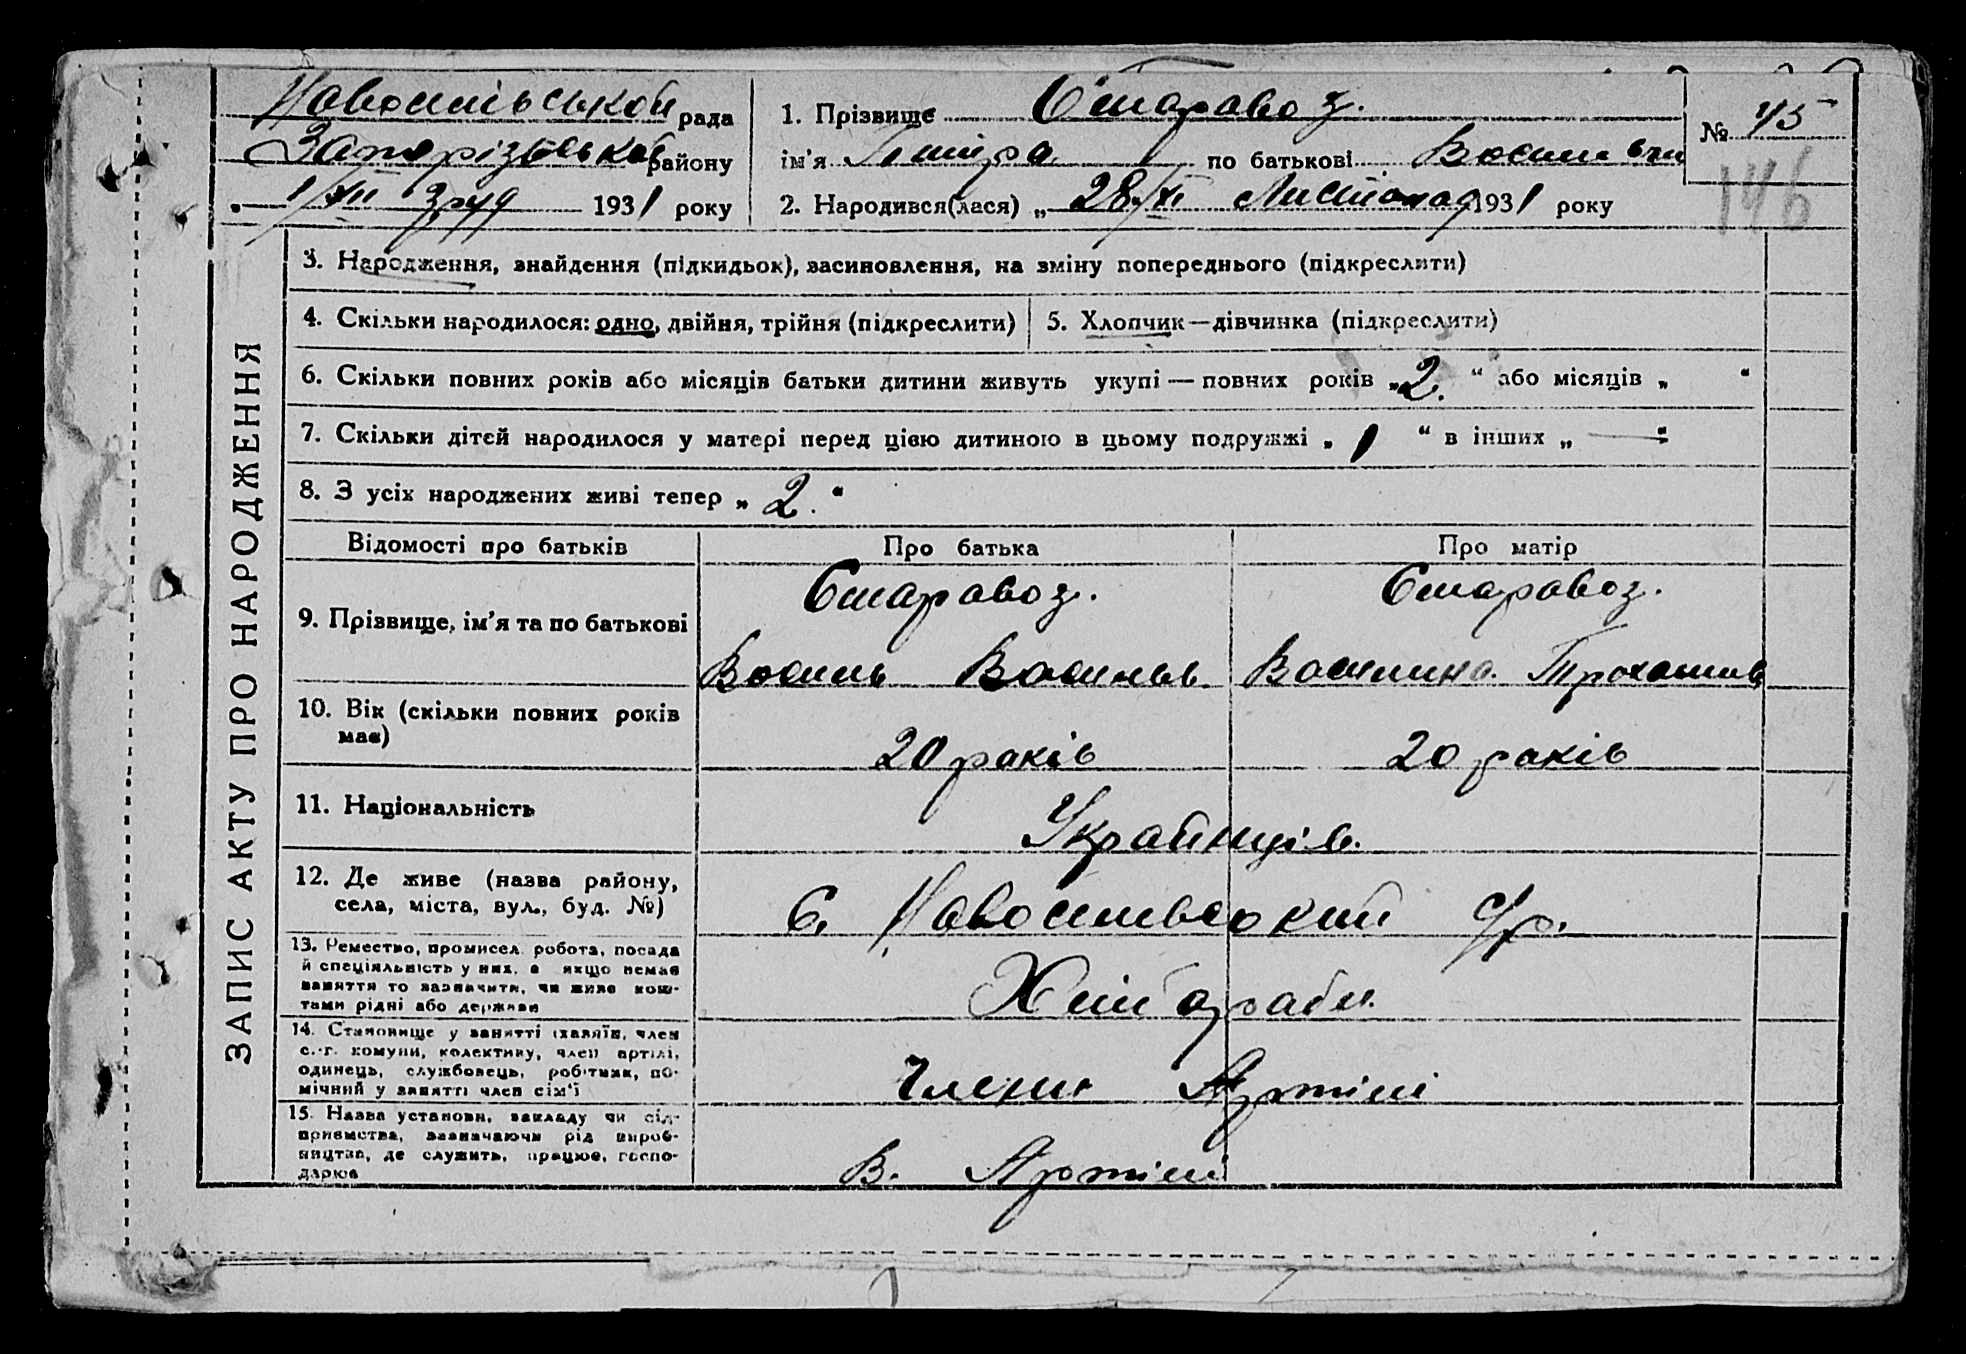 Новосилівськой рада
Запорізської району
" 1/XII груд 1931 року
1. Прізвище Старавоз.
ім'я по батькові
2. Народився(лася) „ 28/XI Листопад 1931 року
№ 45
146
ЗАПИС АКТУ ПРО НАРОДЖЕННЯ
3. Народження, знайдення (підкидьок), засиновлення, на зміну попереднього (підкреслити)
4. Скільки народилося: одно, двійня, трійня (підкреслити)
5. Хлопчик—дівчинка (підкреслити)
6. Скільки повних років або місяців батьки дитини живуть укупі — повних років „ 2. “ або місяців „ “
7. Скільки дітей народилося у матері перед цією дитиною в цьому подружжі „ 1 “ в інших „ — “
8. З усіх народжених живі тепер „ 2. “
Відомості про батьків Про батька Про матір
9. Прізвище, ім'я та по батькові
Старавоз. Старавоз.
Василь Васильв. Василина.
10. Вік (скільки повних років
має)
20 років 20 років
11. Національність
Украйнців.
12. Де живе (назва району,
села, міста, вул., буд. №)
С. Новосилівський с/р.
13. Ремество, промисел, робота, посада
й спеціяльність у них, а якщо немає
заняття то зазначити, чи живе кош-
тами рідні або держави
Хлібороби.
14. Становище у занятті (хазяїн, член
с.-г. комуни, колективу, член артілі,
одинець, службовець, робітник, по-
мічний у занятті член сім'ї
Члени Артілі
15. Назва установи, закладу чи під-
приємства, зазначаючи рід вироб-
ництва, де служить, працює, госпо-
дарює
В. Артілі